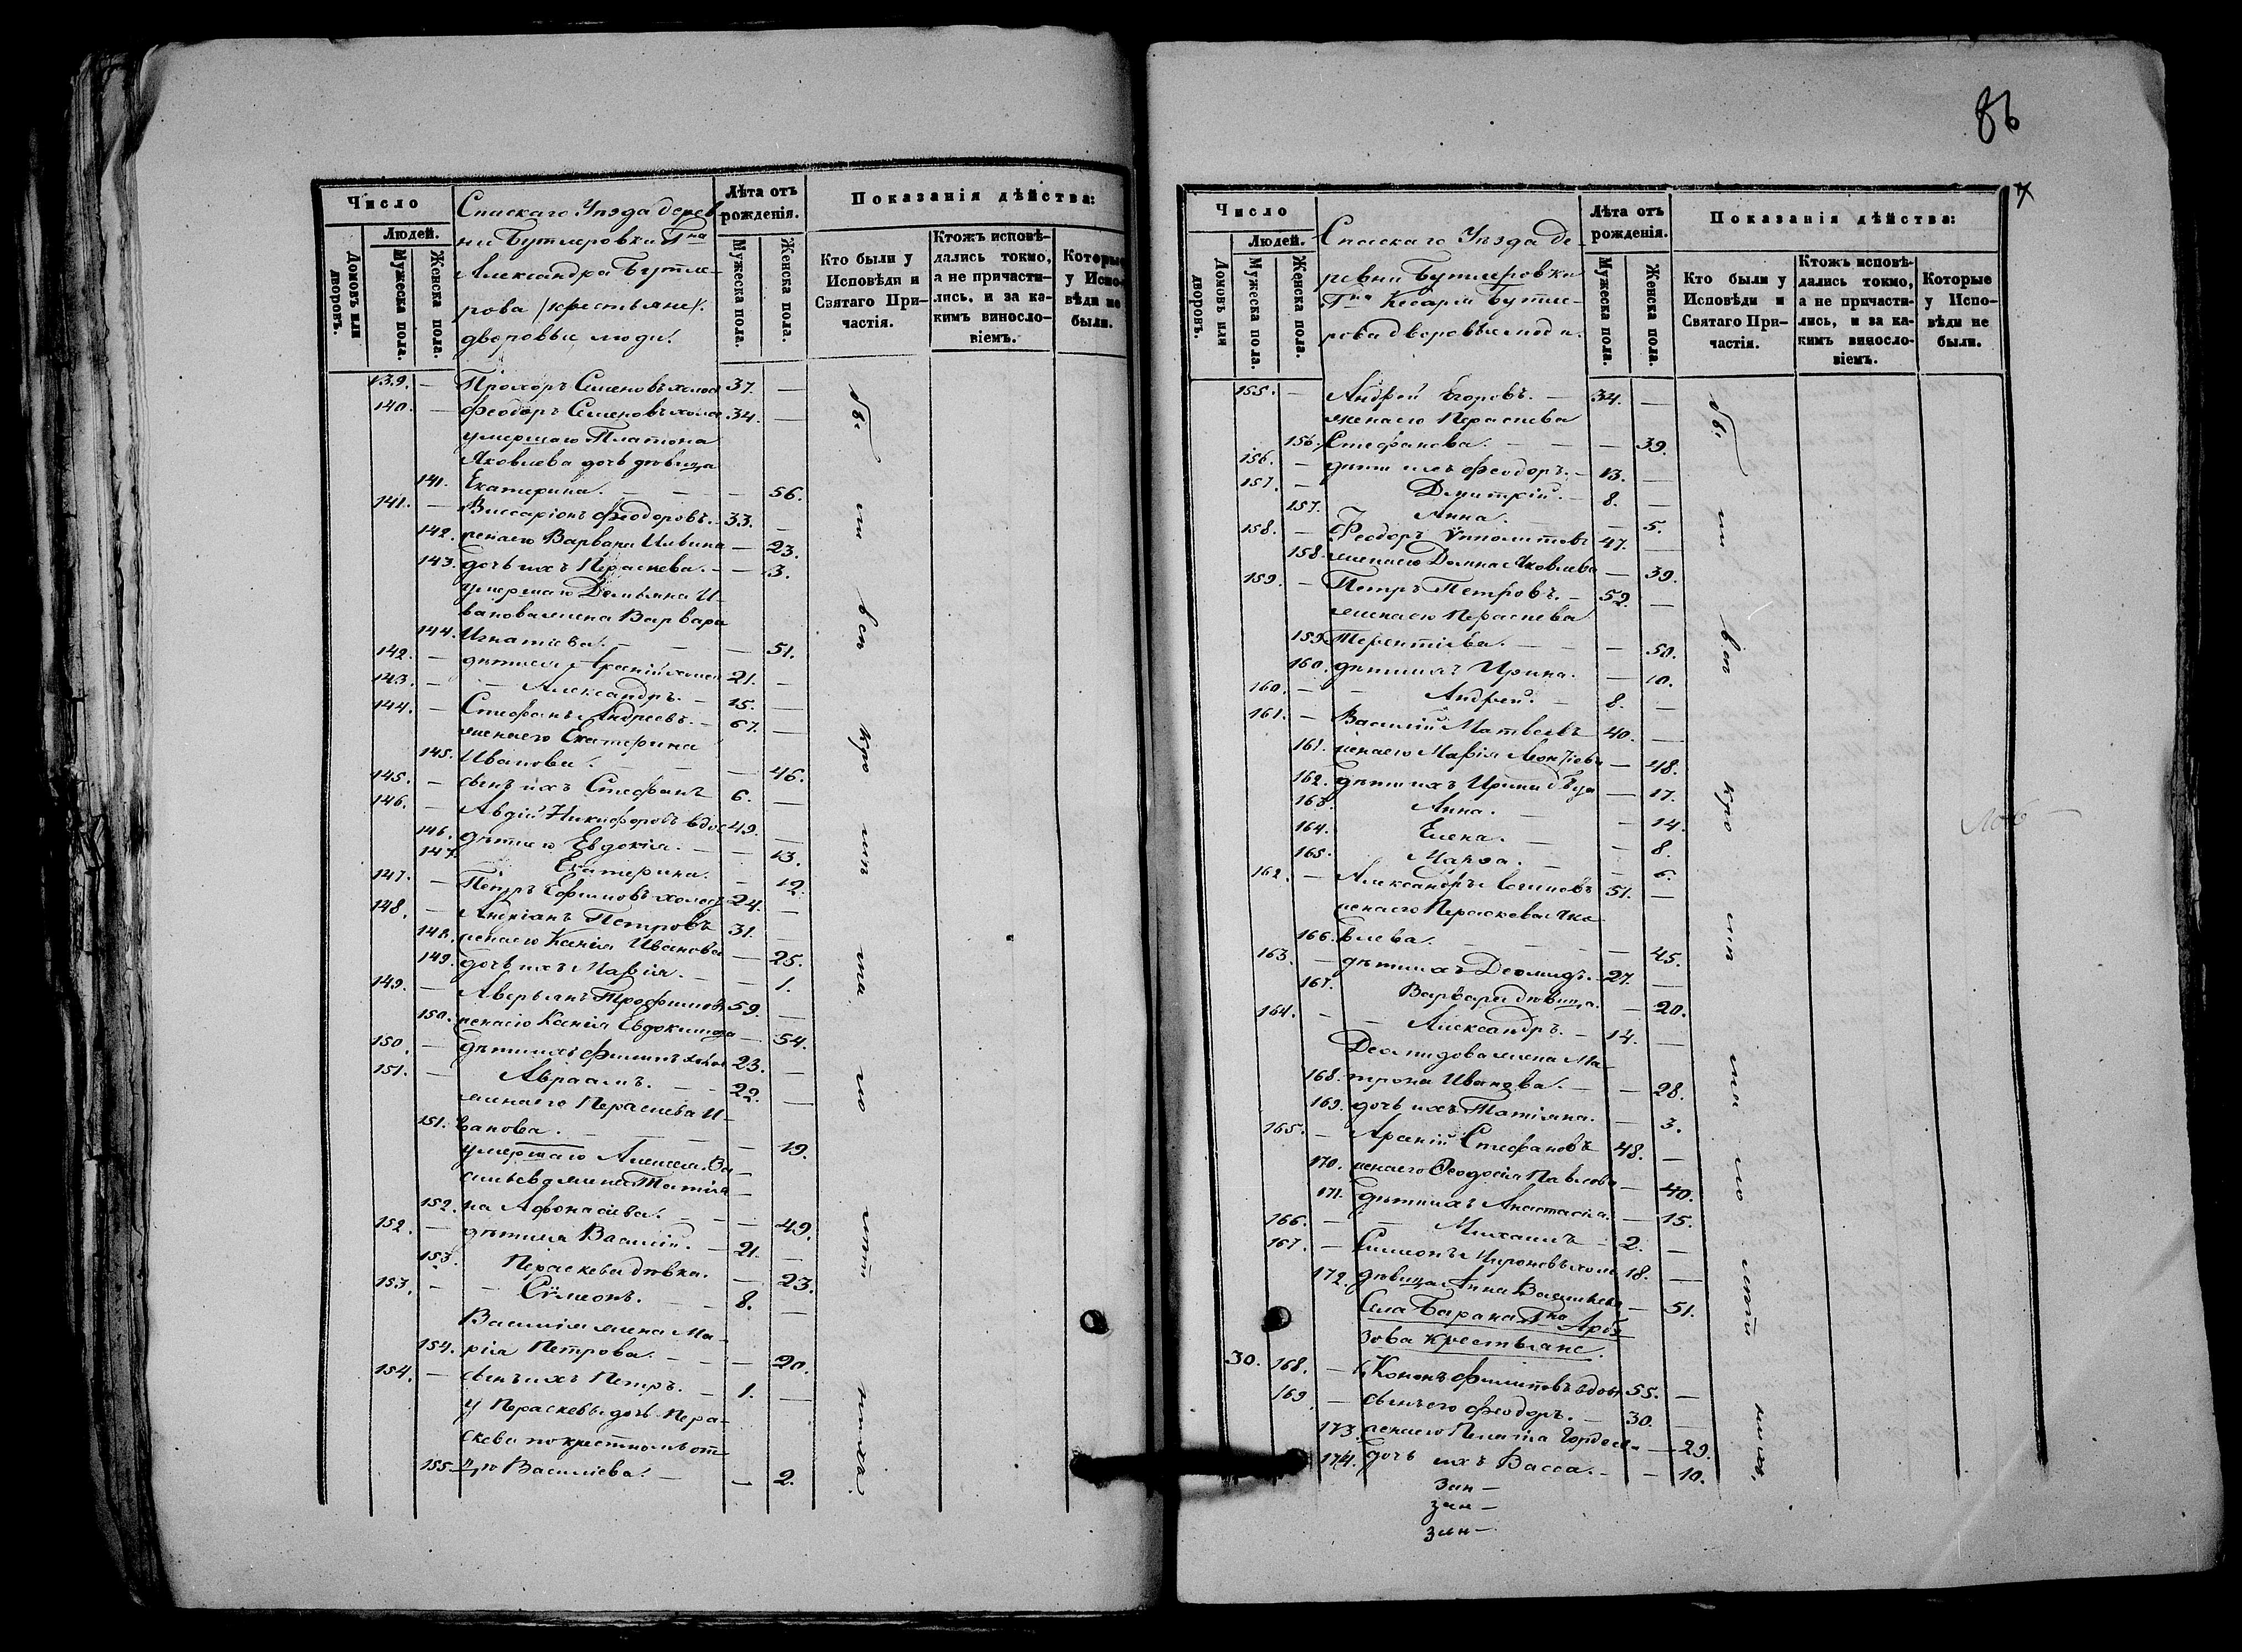 86
Число
Людей.
Домовъ или дворовъ.
Мужеска пола.
Женска пола.
Спаскаго Уѣзда дерев-
ни Бутлеровки Гна
Александра Бутле-
рова /крестьяне/.
дворовые люди.
Лѣта отъ рожденія.
Мужеска пола.
Женска пола.
Показанія дѣйства:
Кто были у Исповѣди и Святаго При-частія.
Ктожъ исповѣ-дались токмо, а не причасти-лись, и за ка-кимъ виносло-віемъ.
Которые у Испо-вѣди не были.
139. — Прохоръ Семеновъ холост 37. —
140. — Феодоръ Семеновъ холос 34. —
умершаго Платона
Яковлева дочь дѣвица
141. Екатерина. — — — 56.
141. — Виссаріонъ Феодоровъ. 33. —
142. жена его Варвара Ильина — 23.
143. дочь ихъ Параскева. — — 3.
умершаго Демьяна И-
ванова жена Варвара
144. Игнатіева. — — — 51.
142. — дѣти ея Арсеній холос 21. —
143. — — Александръ. — 15. —
144. — Стефанъ Андреевъ. — 67. —
жена его Екатерина
145. Иванова. — — — 46.
145. — сынъ ихъ Стефанъ 6. —
146. — Авдій Никифоровъ вдов 49. —
146. дѣти его Евдокія. — — 13.
147. Екатерина. — 12.
147. — Петръ Ефимовъ холост 24. —
148. — Андріанъ Петровъ 31. —
148. жена его Ксенія Иванова — 25.
149. дочь ихъ Марія. — — 1.
149. — Аверьянъ Трофимовъ 59. —
150. жена его Ксенія Евдокимова — 54.
150. — дѣти ихъ Филипъ холос 23. —
151. — Авраамъ. — — 22. —
жена его Параскева И-
151. ванова. — — — 19.
умершаго Алексея Ва-
сильева жена Татiя-
152. на Афонасіева. — — — 49.
152. — дѣти ея Василій. — 21. —
153. Параскева дѣвка. — 23.
153. — — Сѵмеонъ. — — 8. —
Василія жена Ма-
154. рія Петрова. — — — 20.
154. — сынъ ихъ Петръ. — 1. —
у Параскевы дочь Пара-
скева по крестномъ от-
155. цѣ Василіева. — — 2.
бы
ли
всѣ
кро
мѣ
ма
ло
лѣт
ныхъ.
Число
Людей.
Домовъ или дворовъ.
Мужеска пола.
Женска пола.
Спаскаго Уѣзда де-
ревни Бутлеровки
Гна Кесаріи Бутле-
рова дворовые люди.
Лѣта отъ рожденія.
Мужеска пола.
Женска пола.
Показанія дѣйства:
Кто были у Исповѣди и Святаго При-частія.
Ктожъ исповѣ-дались токмо, а не причасти-лись, и за ка-кимъ виносло-віемъ.
Которые у Испо-вѣди не были.
155. — Андрей Егоровъ. — 34. —
жена его Параскева
156. Стефанова. — — — 39.
156. — дѣти ихъ Феодоръ. — 13. —
157. — Дмитрій. — 8. —
157. Анна. — — 5.
158. — Феодоръ Ѵпполитовъ 47. —
158. жена его Домна Яковлева — 39.
159. — Петръ Петровъ. — 52. —
жена его Параскева
159. Терентіева. — — — 50.
160. дѣти ихъ Ирина. — 10.
160. — — Андрей. — 8. —
161. — Василій Матвеевъ 40. —
161. жена его Марія Леонтіева — 48.
162. дѣти ихъ Ирина двца — 17.
163. Анна. — — 14.
164. Елена. — — 8.
165. Марѳа. — — 6.
162. — Александръ Осиповъ 51. —
жена его Параскева Яко-
166. влева. — — — 45.
163. — дѣти ихъ Деомидъ. 27. —
167. Варвара дѣвица. — 20.
164. — — Александръ. — 14. —
Деомидова жена Ма-
168. трона Иванова. — — 28.
169. дочь ихъ Татіяна. — 3.
165. — Арсеній Стефановъ 48. —
170. жена его Ѳеодосія Павлова — 40.
171. дѣти ихъ Анастасія. — 15.
166. — — Михаилъ — 2. —
167. — Симеонъ Мироновъ холо 18. —
172. дѣвица Анна Васильева — 51.
Села Барана Гна Арбу
зова крестьяне.
30. 168. — Кононъ Филиповъ вдов 55. —
169. — сынъ его Феодоръ. — 30. —
173. жена его Пелагія Гордеева — 29.
174. дочь ихъ Васса. — — 10.
бы
ли
всѣ
кро
мѣ
ма
ло
лѣт
ныхъ.